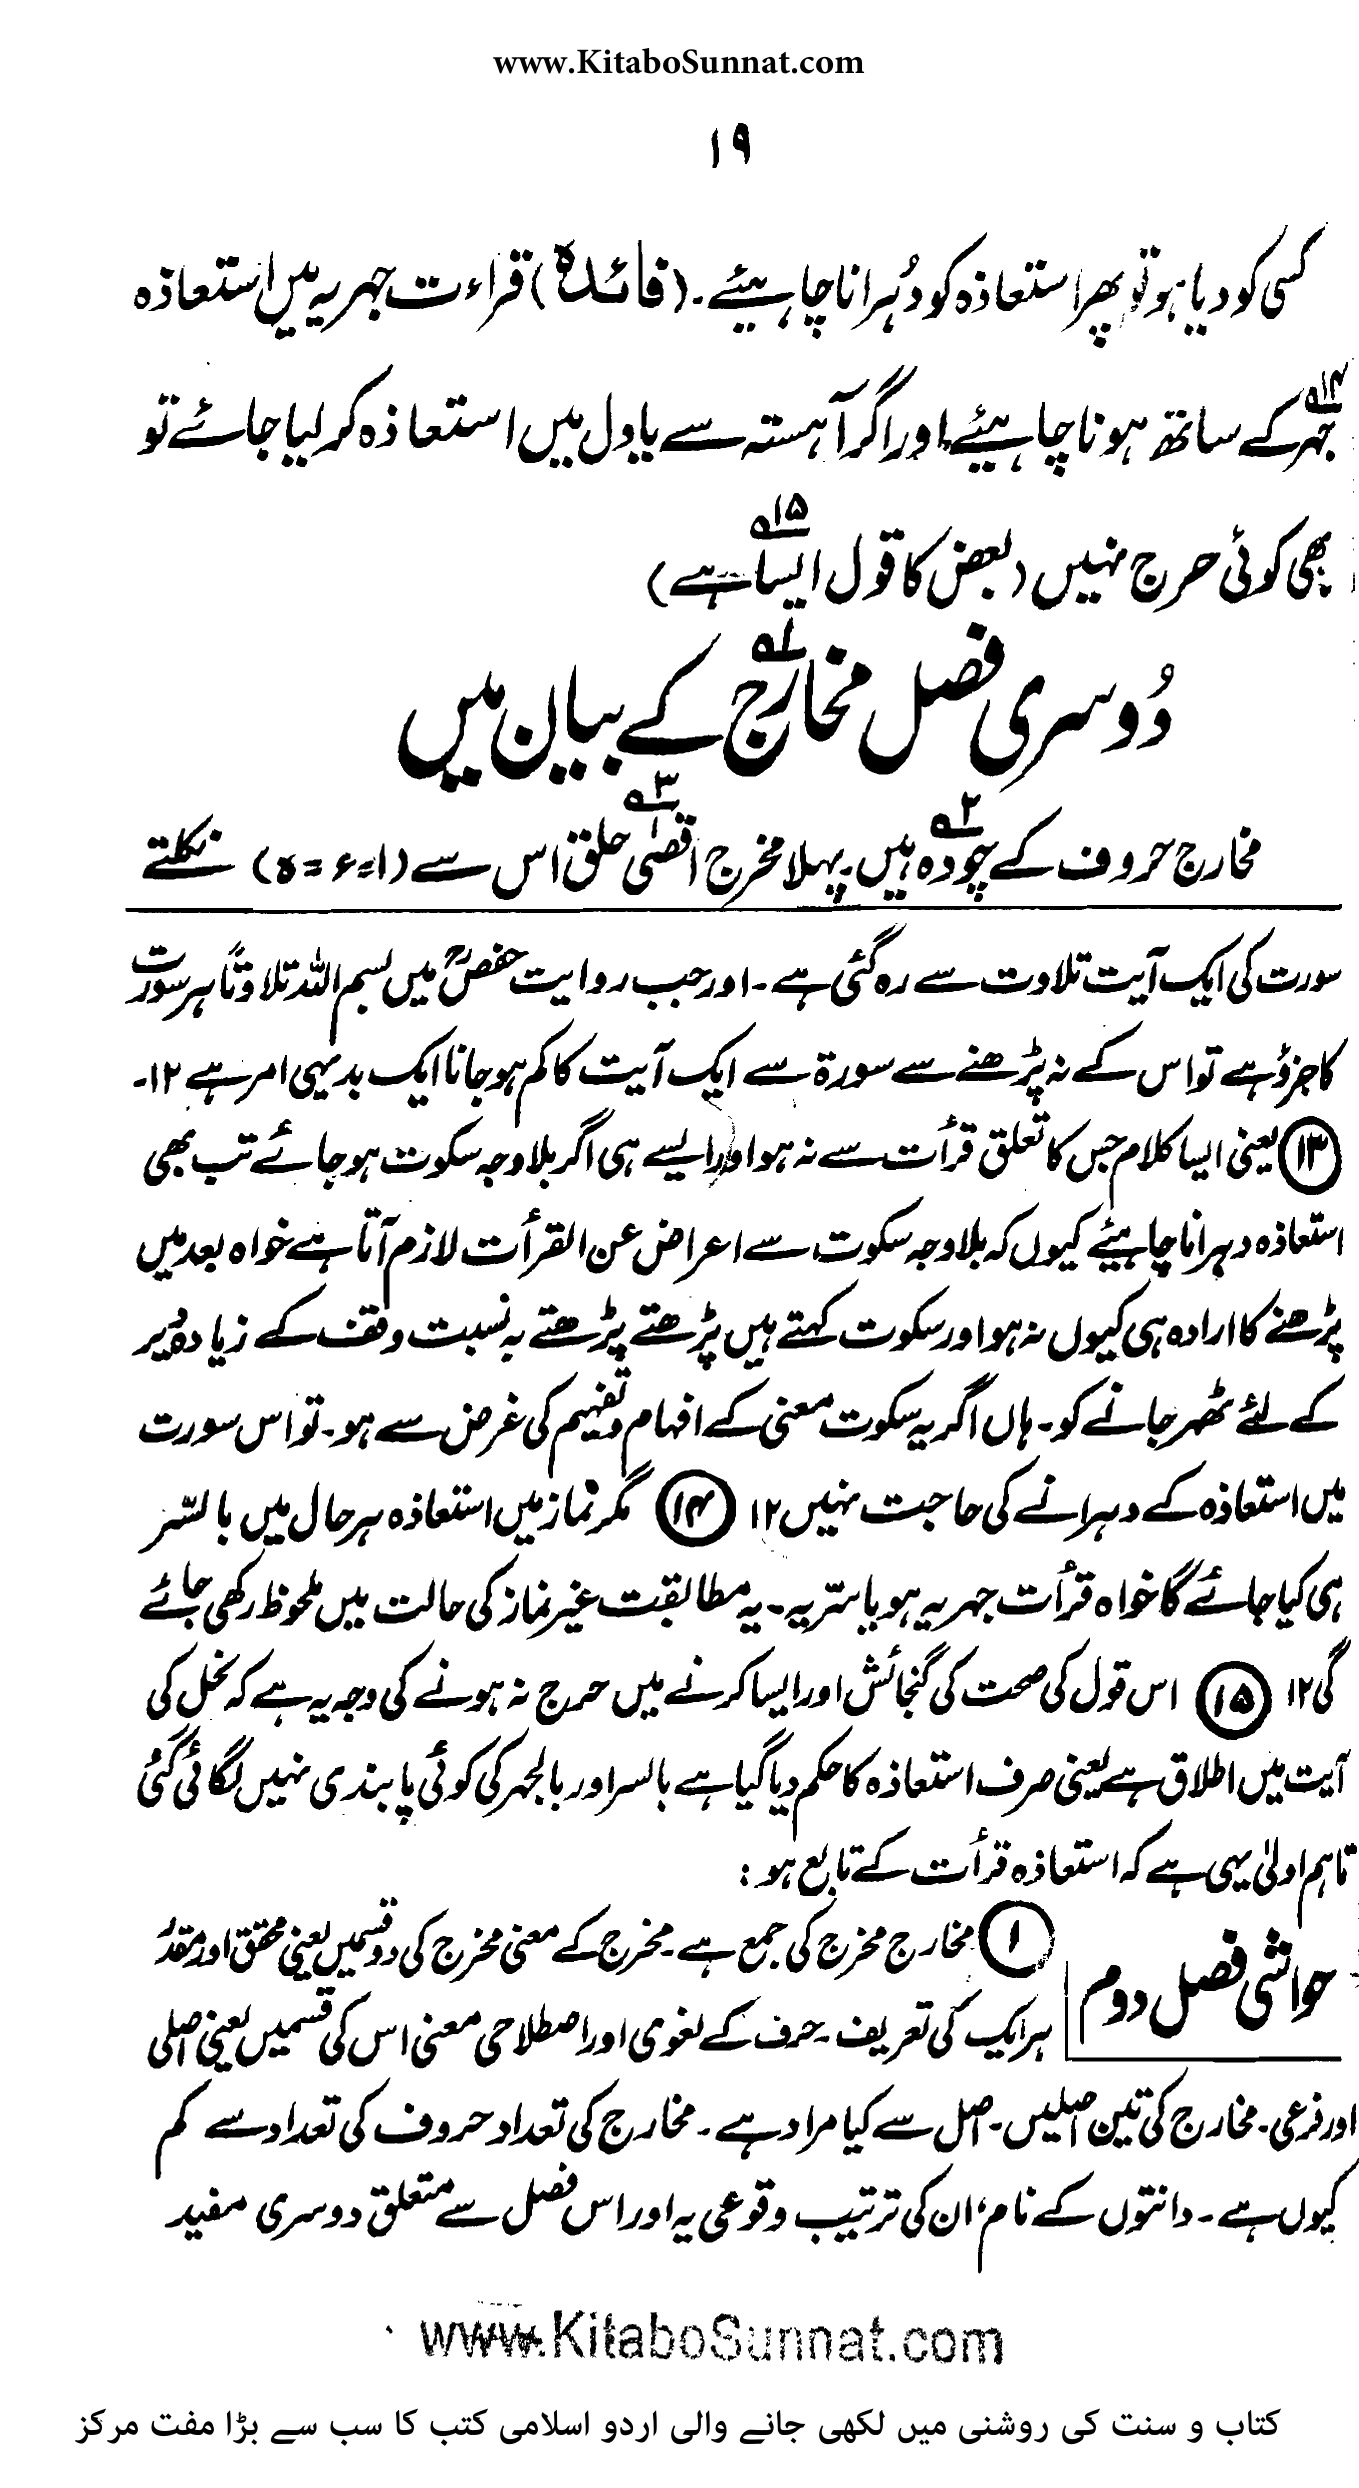 www.KitaboSunnat.com
۱۹
کسی کو دیا ہو تو پھر استعاذہ کو دُہرانا چاہیئے۔ (فائدہ) قراءت جہریہ میں استعاذہ
جہر۱۴ کے ساتھ ہونا چاہیئے اور اگر آہستہ سے یا دل میں استعاذہ کر لیا جائے تو
بھی کوئی حرج نہیں (بعض کا قول ایسا۱۵ ہے)
دُوسری فصل مخارج۱ کے بیان میں
مخارج حروف کے چودہ۲ ہیں۔ پہلا مخرج اقصٰی۳ حلق اس سے (ا=ء=ہ) نکلتے
سورت کی ایک آیت تلاوت سے رہ گئی ہے۔ اور جب روایت حفصؒ میں بسم اللہ تلاوتاً ہر سورت
کا جزؤ ہے تو اس کے نہ پڑھنے سے سورۃ سے ایک آیت کا کم ہو جانا ایک بدیہی امر ہے ۱۲۔
۱۳ یعنی ایسا کلام جس کا تعلق قرأت سے نہ ہو اور ایسے ہی اگر بلا وجہ سکوت ہو جائے تب بھی
استعاذہ دہرانا چاہیئے کیوں کہ بلا وجہ سکوت سے اعراض عن القرأت لازم آتا ہے خواہ بعد میں
پڑھنے کا ارادہ ہی کیوں نہ ہو اور سکوت کہتے ہیں پڑھتے پڑھتے بہ نسبت وقف کے زیادہ دیر
کے لئے ٹھہر جانے کو۔ ہاں اگر یہ سکوت معنی کے افہام و تفہیم کی غرض سے ہو۔ تو اس سورت
میں استعاذہ کے دہرانے کی حاجت نہیں ۱۲ ۱۴ مگر نماز میں استعاذہ ہر حال میں بالسّر
ہی کیا جائے گا خواہ قرأت جہریہ ہو یا سرّیہ۔ یہ مطابقت غیر نماز کی حالت میں ملحوظ رکھی جائے
گی ۱۲ ۱۵ اس قول کی صحت کی گنجائش اور ایسا کرنے میں حرج نہ ہونے کی وجہ یہ ہے کہ نحل کی
آیت میں اطلاق ہے یعنی صرف استعاذہ کا حکم دیا گیا ہے بالسر اور بالجہر کی کوئی پابندی نہیں لگائی گئی
تاہم اولیٰ یہی ہے کہ استعاذہ قرأت کے تابع ہو :
حواشی فصل دوم
۱ مخارج مخرج کی جمع ہے۔ مخرج کے معنی مخرج کی دو قسمیں یعنی محقق اور مقدر
ہر ایک کی تعریف۔ حرف کے لغوی اور اصطلاحی معنی اس کی قسمیں یعنی اصلی
اور فرعی۔ مخارج کی تین اصلیں۔ اصل سے کیا مراد ہے۔ مخارج کی تعداد حروف کی تعداد سے کم
کیوں ہے۔ دانتوں کے نام، ان کی ترتیب وقوعی یہ اور اس فصل سے متعلق دوسری مفید
www.KitaboSunnat.com
کتاب و سنت کی روشنی میں لکھی جانے والی اردو اسلامی کتب کا سب سے بڑا مفت مرکز